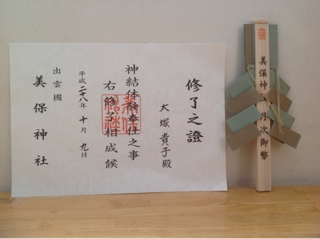 修了之證
大塚貴子殿
神結体験奉仕之事
右修了相成候
平成二十八年 十月 九日
出雲國
美保神社
美保神社 月次御幣